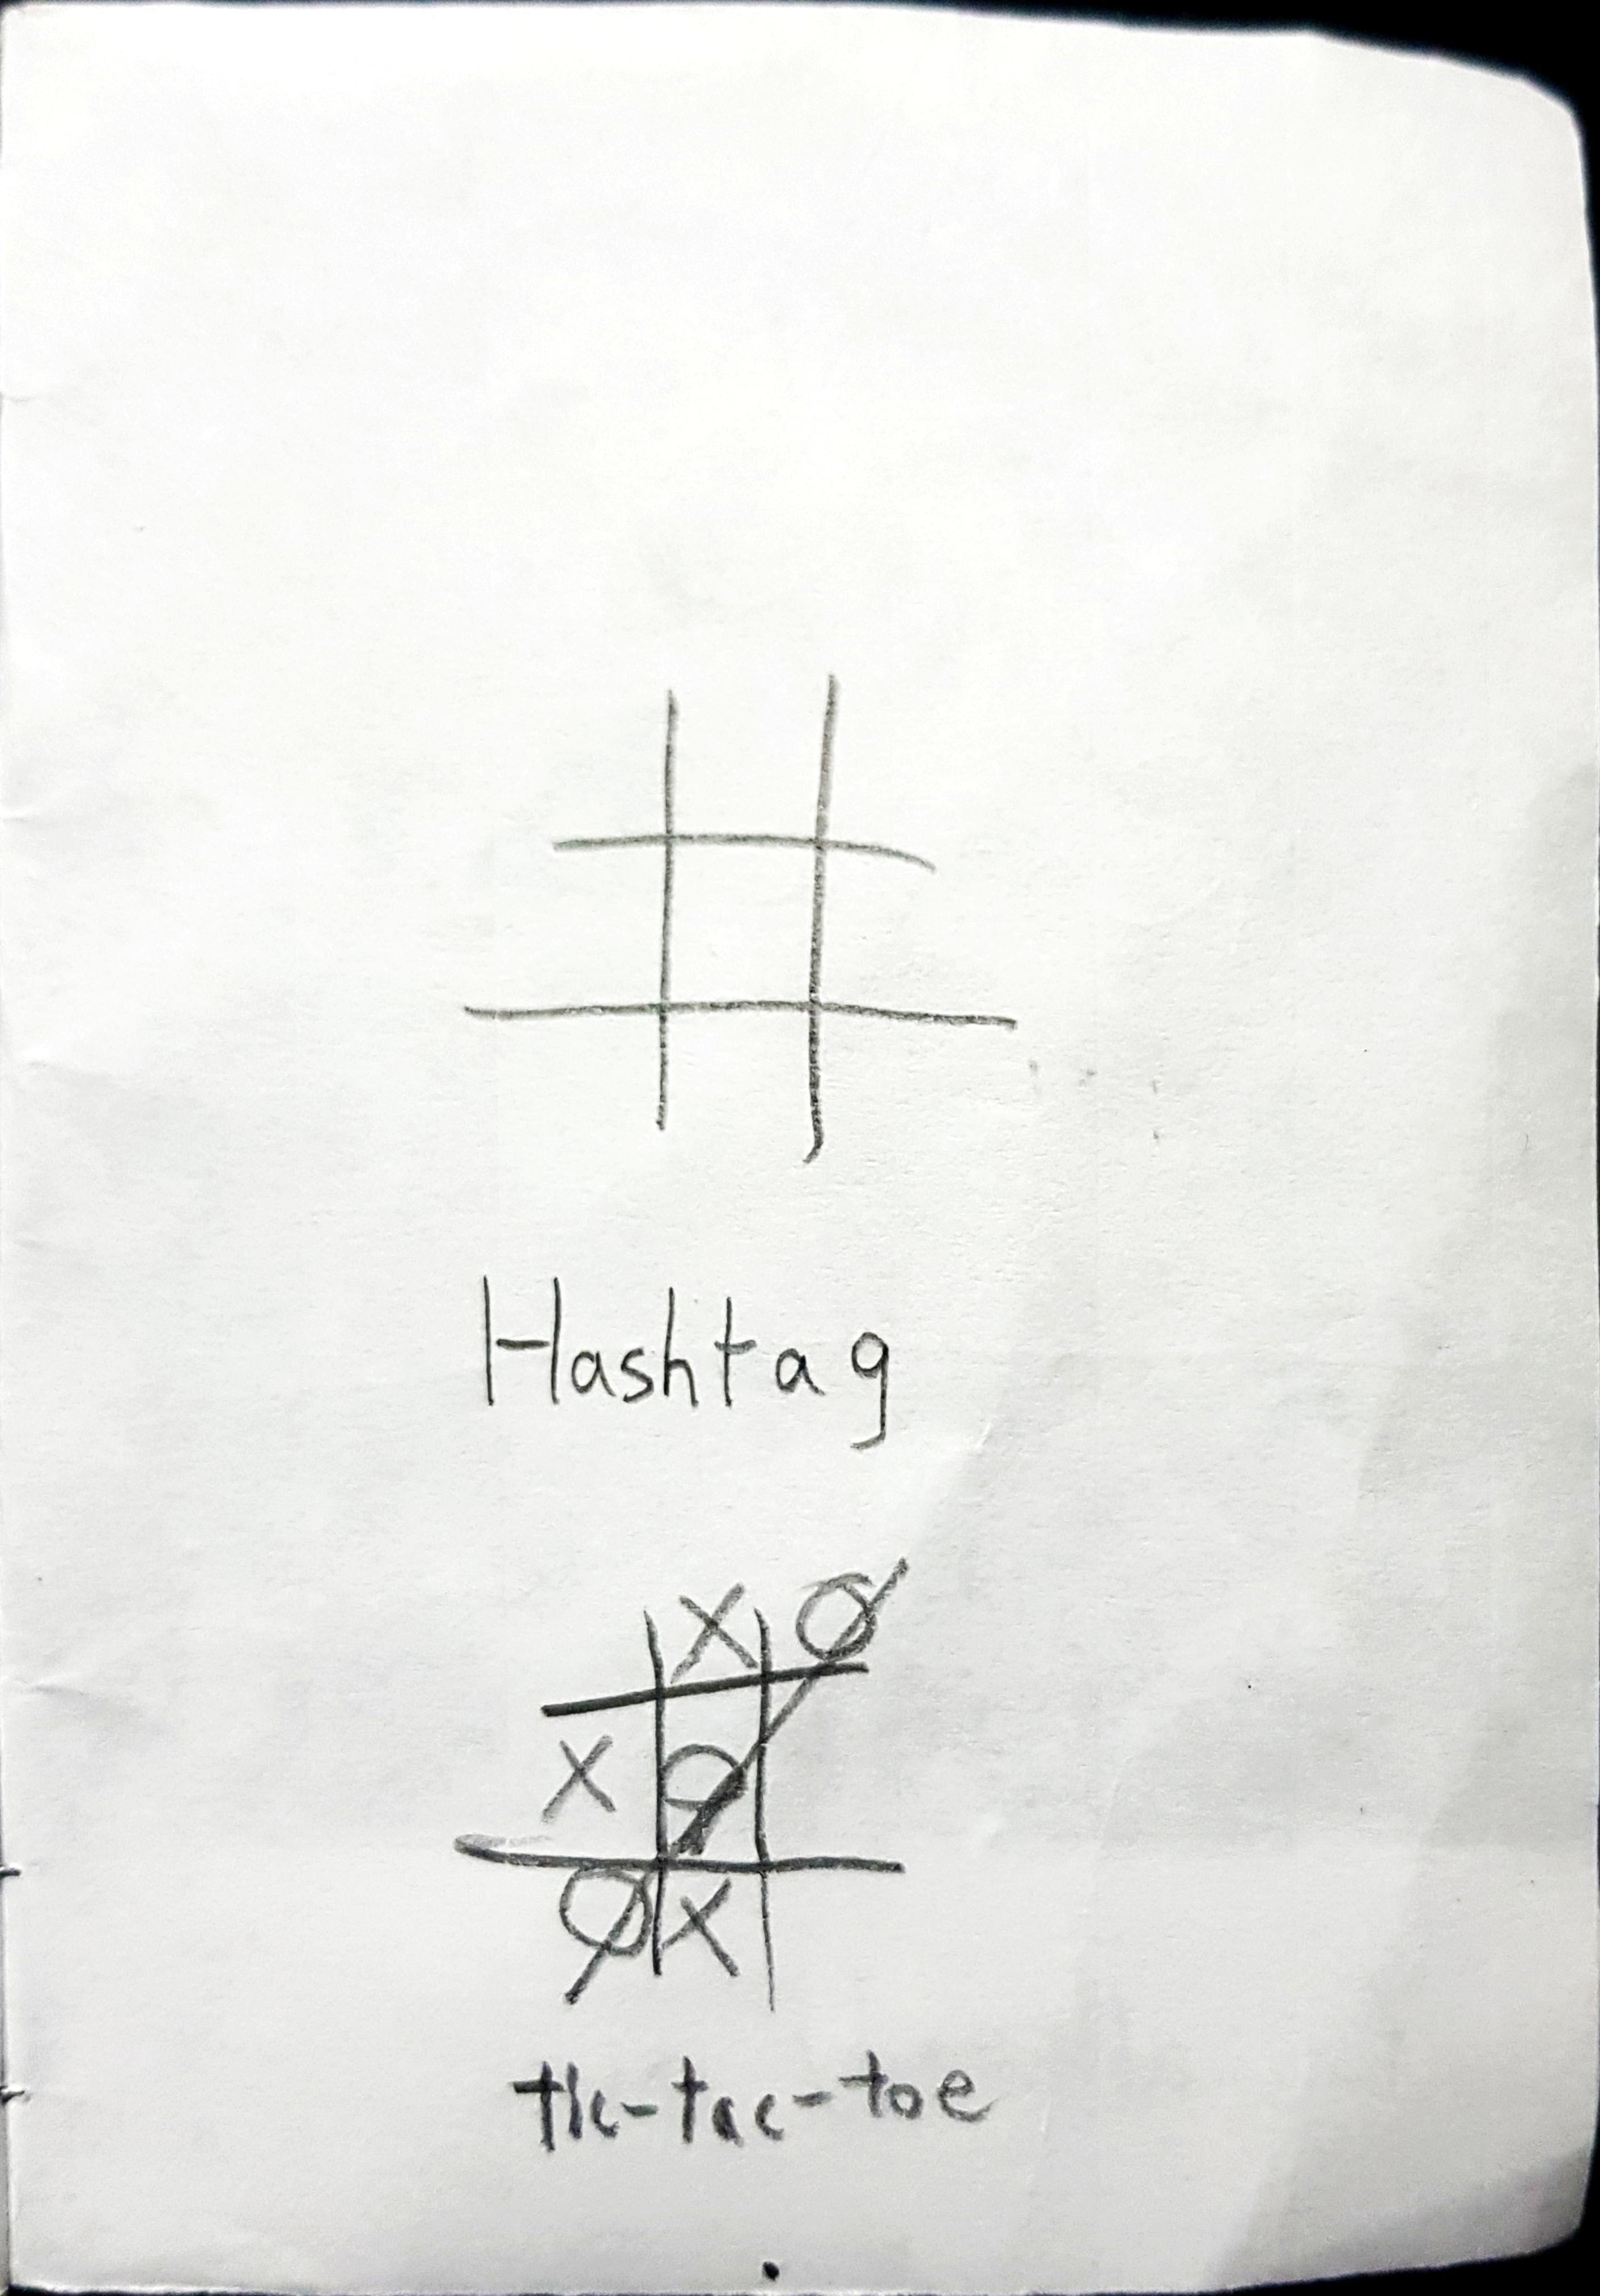 #
Hashtag
X O
X O
O X
tic-tac-toe